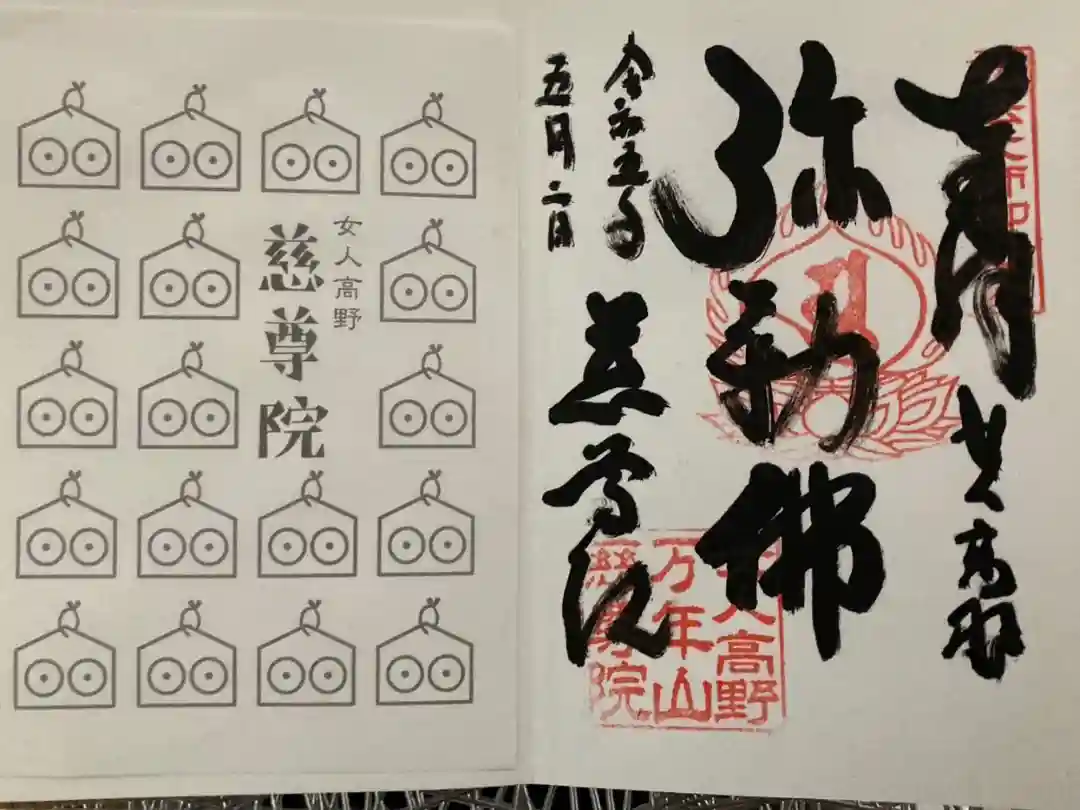 女人高野
弥勒佛
令和五年
五月二日
慈尊院
女人高野
万年山
慈尊院
女人高野
慈尊院